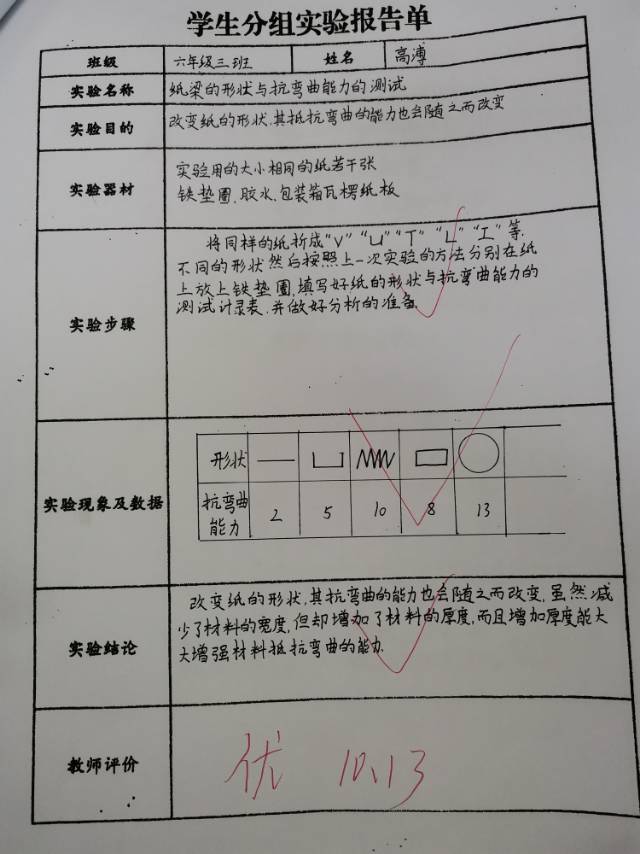 学生分组实验报告单
班级 六年级三班 姓名 高溥
实验名称 纸梁的形状与抗弯曲能力的测试
实验目的 改变纸的形状,其抵抗弯曲的能力也会随之而改变
实验器材
实验用的大小相同的纸若干张
铁垫圈,胶水,包装箱瓦楞纸板
实验步骤
将同样的纸折成“V”“U”“T”“L”“工”等.
不同的形状然后按照上一次实验的方法分别在纸
上放上铁垫圈,填写好纸的形状与抗弯曲能力的
测试计录表,并做好分析的准备.
实验现象及数据
形状
抗弯曲能力 2 5 10 8 13
实验结论
改变纸的形状,其抗弯曲的能力也会随之而改变,虽然减
少了材料的宽度,但却增加了材料的厚度,而且增加厚度能大
大增强材料抵抗弯曲的能力.
教师评价 优 10.13